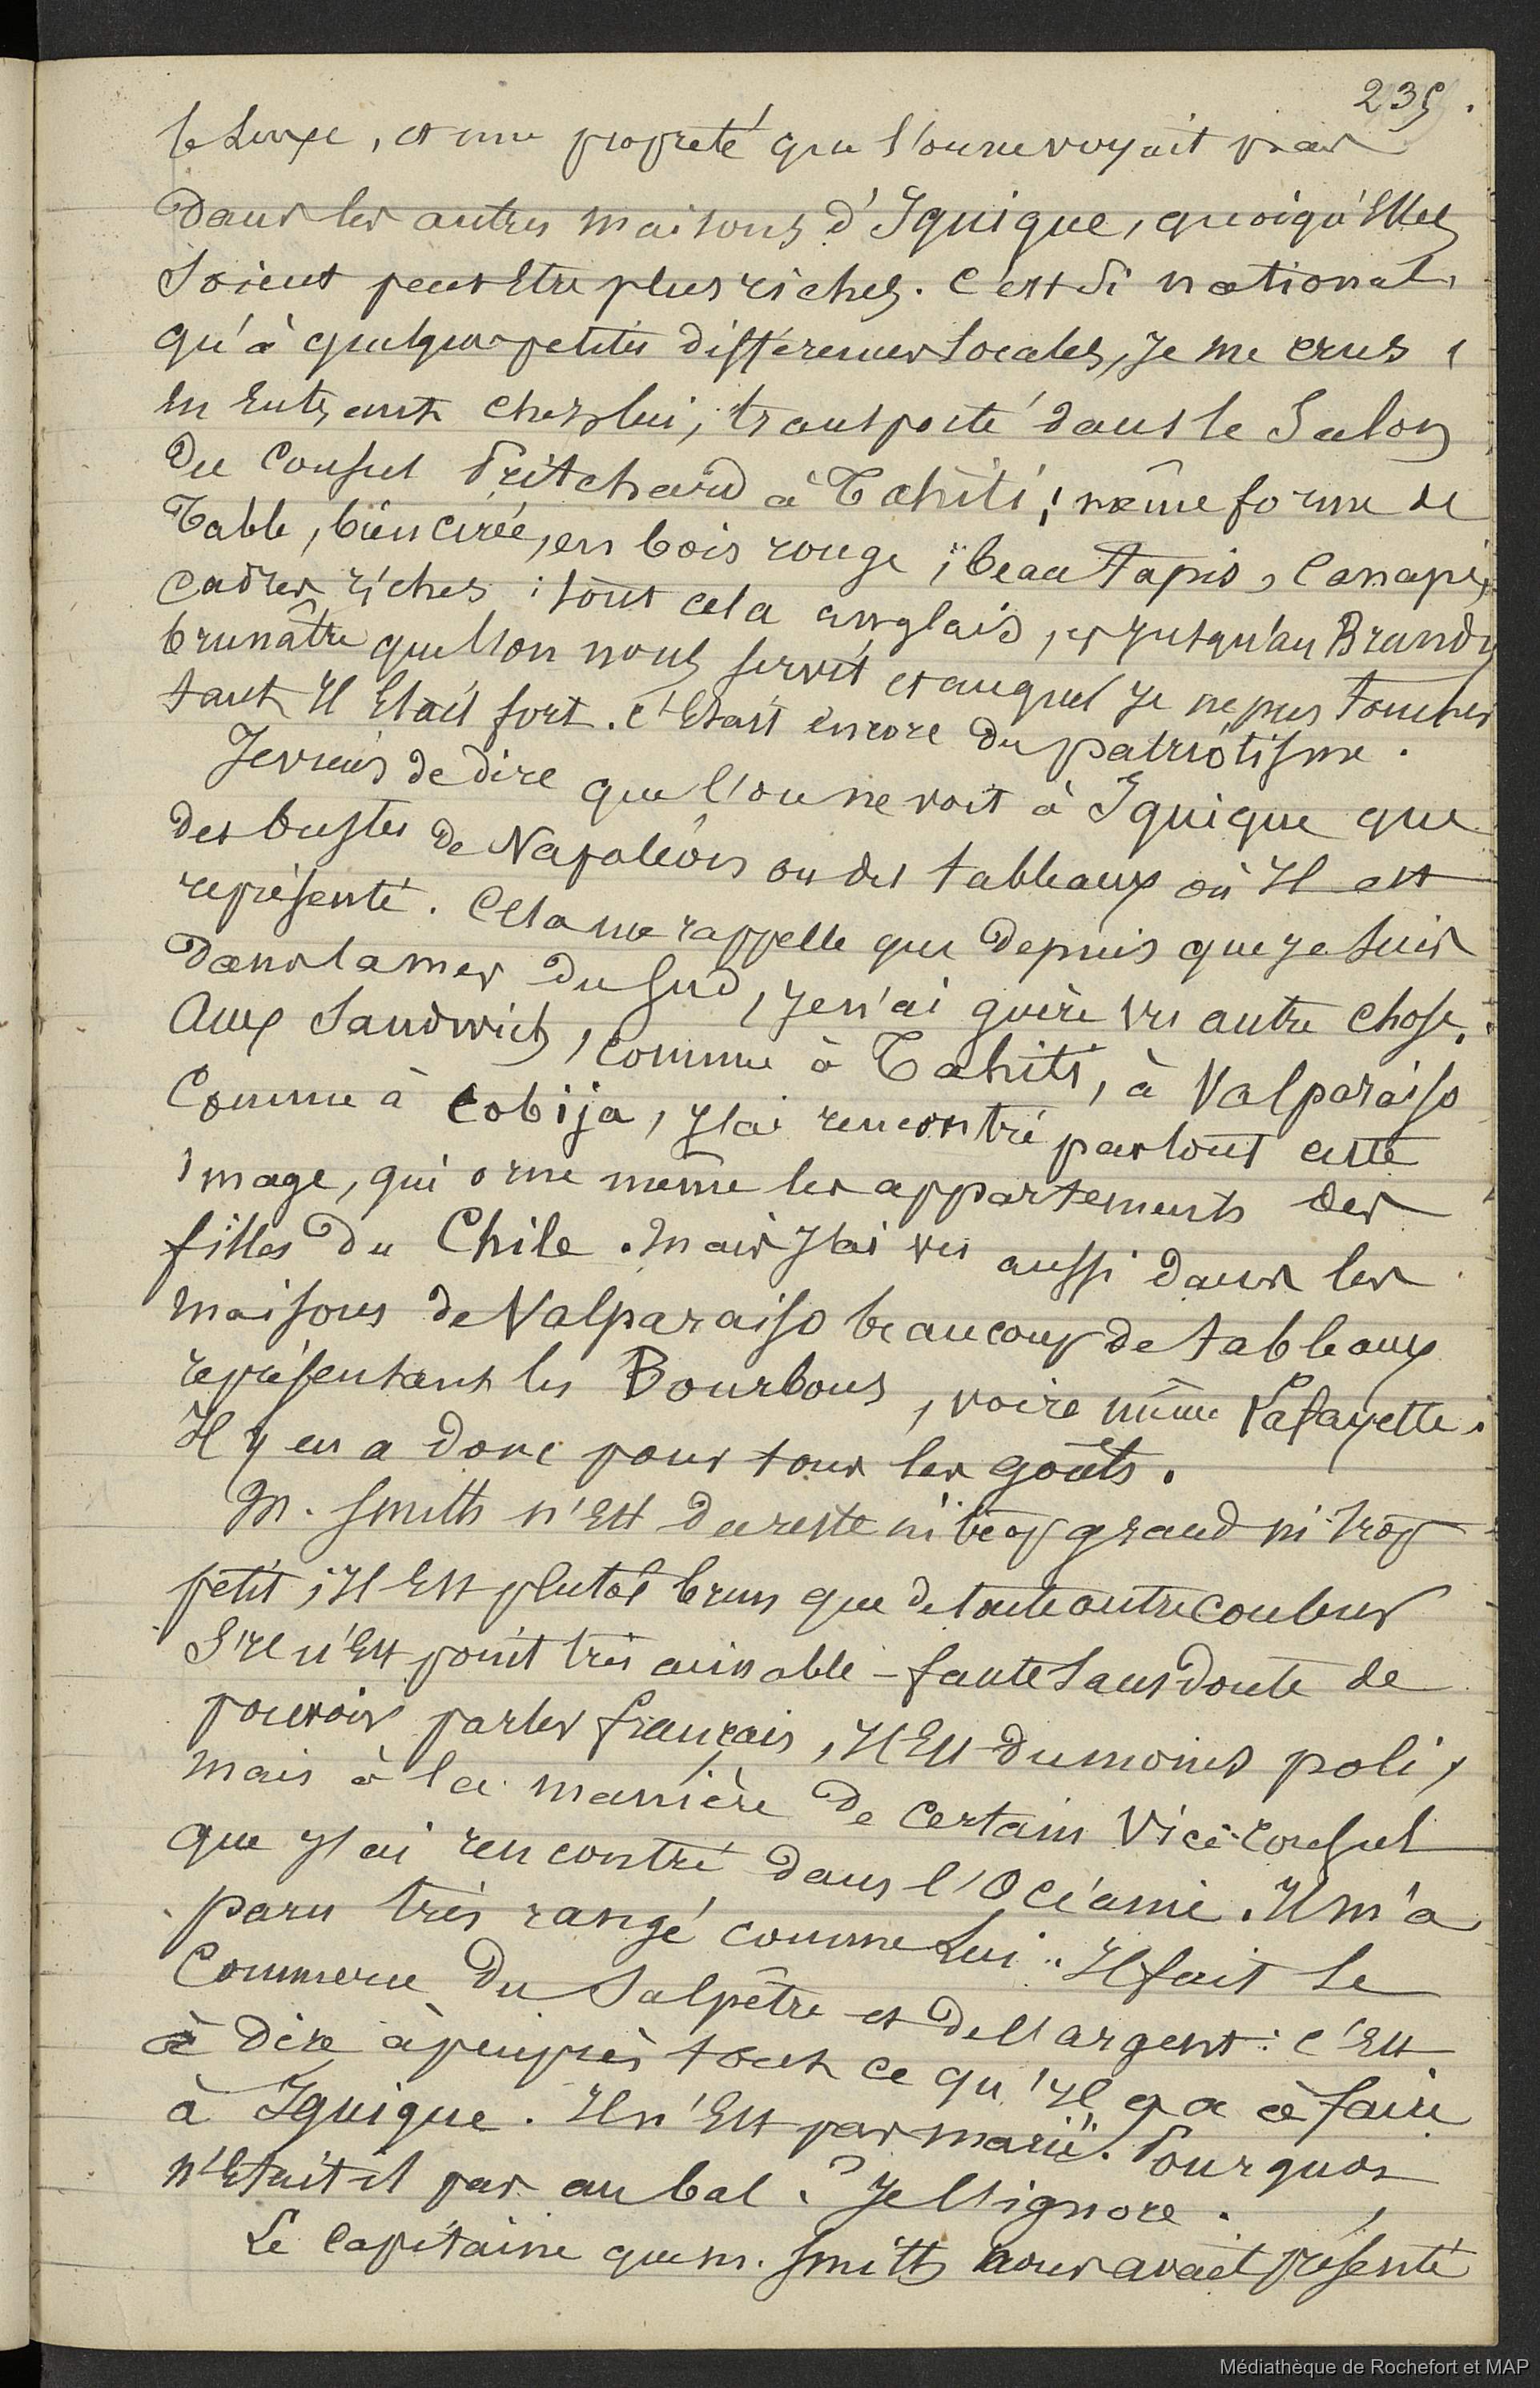 235.
le Luxe, et une propreté que l'on ne voyait pas
Dans les autres maisons d'Iquique, quoiqu'Elles
Soient peut Etre plus riches. C'est si national,
qu'à quelques petites différences Locales, Je me crus,
En Entrant chez lui, transporté dans le Salon
Du Consul Pritchard à Tahiti ; même forme de
Table, bien cirée, en bois rouge ; beau Tapis, Canapé,
Cadres riches : tout cela anglais, et jusqu'au Brandy
brunâtre que l'on nous servit et auquel Je ne pus toucher
tant Il Etait fort. C'Etait encore Du patriotisme.
Je viens de dire que l'on ne voit à Iquique que
des bustes de Napoléon ou des tableaux où Il est
représenté. Cela me rappelle que Depuis que je suis
Dans la mer Du Sud, Je n'ai guère vu autre chose.
Aux Sandwich, comme à Tahiti, à Valparaiso
Comme à Cobija, J'ai rencontré partout cette
image, qui orne même les appartements des
filles Du Chile. Mais J'ai vu aussi dans les
maisons de Valparaiso beaucoup de tableaux
représentant les Bourbons, voire même Lafayette.
Il y en a donc pour tous les goûts.
M. Smith n'Est Du reste ni trop grand ni trop
petit ; Il Est plutôt brun que de toute autre couleur
S'Il n'Est point très aimable - faute sans Doute de
pouvoir parler français, Il Est du moins poli,
mais à la manière De certain Vice-Consul
que J'ai rencontré dans l'Océanie. Il m'a
paru très rangé comme Lui. Il fait le
Commerce Du Salpêtre et de l'argent : c'Est
à Dire à peu près tout ce qu'Il y a à faire
à Iquique. Il n'Est pas marié. Pourquoi
n'Etait il pas au bal ? Je l'ignore.
Le Capitaine que M. Smith nous avait présenté
Médiathèque de Rochefort et MAP